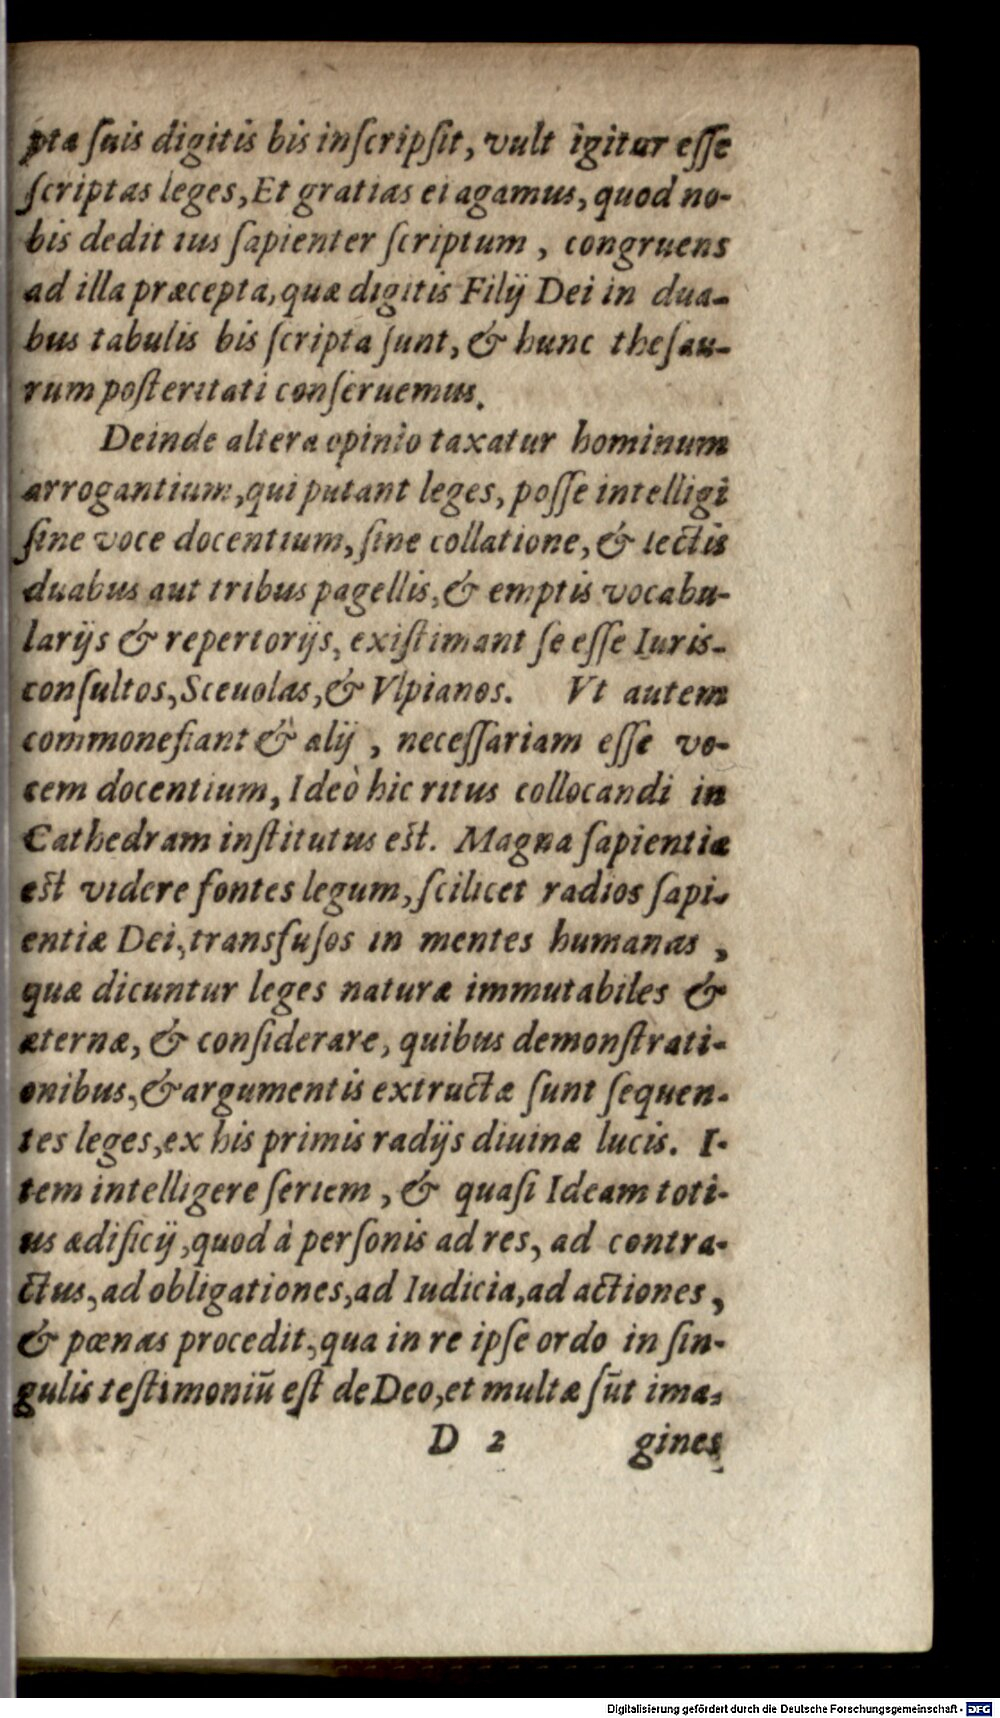 pta ſuis digitis bis inſcripſit, vult igitur eſſe
ſcriptas leges, Et gratias ei agamus, quod no-
bis dedit ius ſapienter ſcriptum, congruens
ad illa præcepta, quæ digitis Filij Dei in dua-
bus tabulis bis ſcripta ſunt, & hunc theſau-
rum poſteritati conſeruemus.
Deinde altera opinio taxatur hominum
arrogantium, qui putant leges, poſſe intelligi
ſine voce docentium, ſine collatione, & lectis
duabus aut tribus pagellis, & emptis vocabu-
larijs & repertorijs, exiſtimant ſe eſſe Iuris-
conſultos, Sceuolas, & Vlpianos. Vt autem
commonefiant & alij, neceſſariam eſſe vo-
cem docentium, Ideò hic ritus collocandi in
Cathedram inſtitutus eſt. Magna ſapientiæ
eſt videre fontes legum, ſcilicet radios ſapi-
entiæ Dei, transfuſos in mentes humanas,
quæ dicuntur leges naturæ immutabiles &
æternæ, & conſiderare, quibus demonſtrati-
onibus, & argumentis extructæ ſunt ſequen-
tes leges, ex his primis radijs diuinæ lucis. I-
tem intelligere ſeriem, & quaſi Ideam toti-
us ædificij, quod à perſonis ad res, ad contra-
ctus, ad obligationes, ad Iudicia, ad actiones,
& pœnas procedit, qua in re ipſe ordo in ſin-
gulis teſtimoniū eſt de Deo, et multæ ſūt ima-
D 2 gines
Digitalisierung gefördert durch die Deutsche Forschungsgemeinschaft - DFG